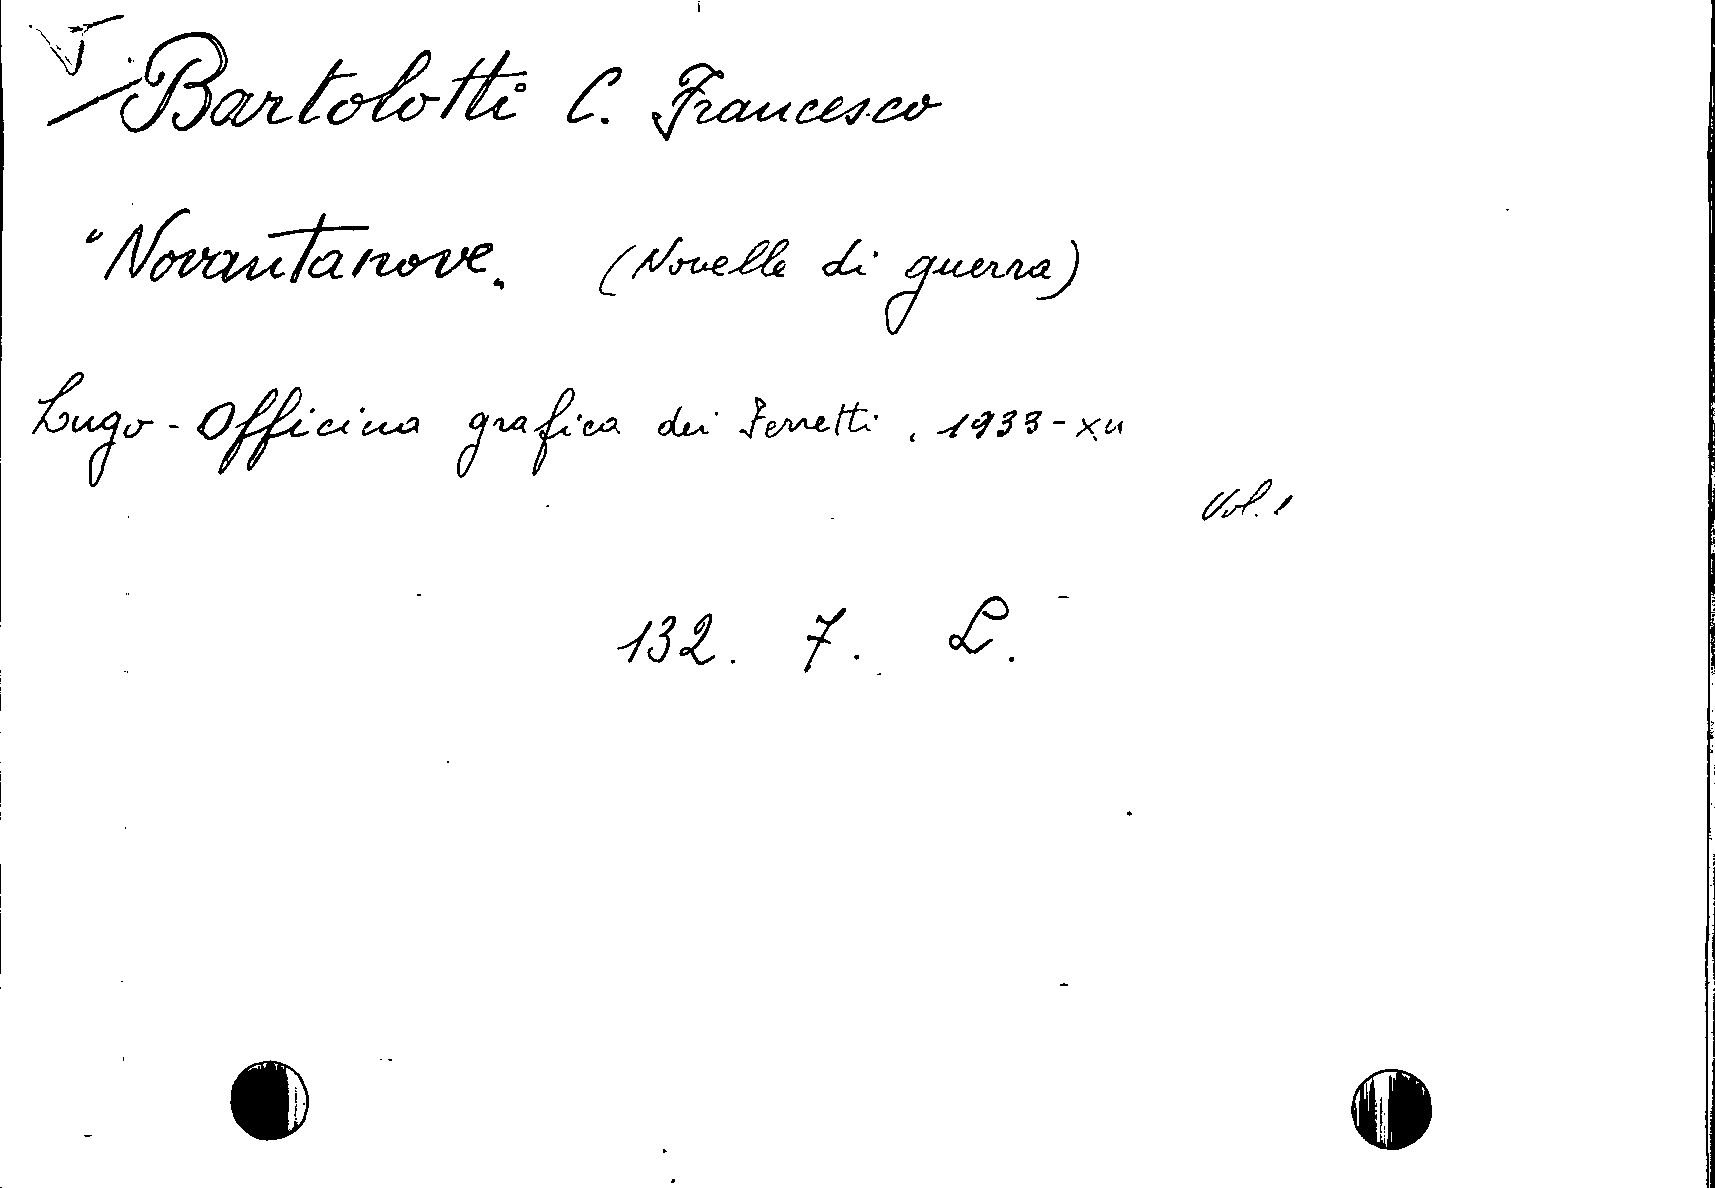 Bartolotti C. Francesco
"Novantanove„ (Novelle di guerra)
Lugo - Officina grafica dei Ferretti. 1933-XII
Vol. 1
132. 7. L.